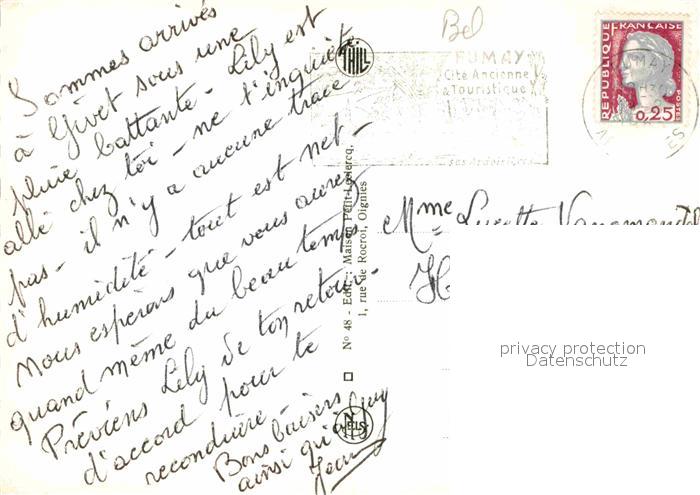 Sommes arrivés
à Givet sous une
pluie battante - Lily est
allé chez toi - ne t'inquiète
pas - il n'y a aucune trace
d'humidité - tout est net -
Nous espérons que vous aurez
quand même du beau temps
Préviens Lily de ton retour -
d'accord pour te
reconduire
Bons baisers
ainsi qu'à Guy
Jean
Bel
THILL
N° 48 - Edit.: Maison Petit-Leclercq,
1, rue de Rocroi, Oignies
NELS
FUMAY
Cité Ancienne
& Touristique
ses Ardoisières
REPUBLIQUE FRANÇAISE
POSTES
0,25
Mme Lucette
privacy protection
Datenschutz